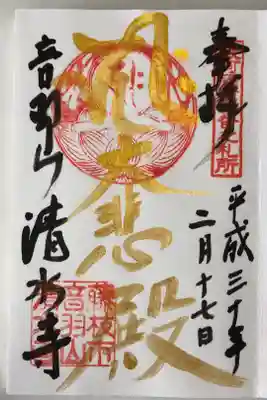 奉拝
平成三十年
二月十七日
大悲殿
音羽山 清水寺
藤枝市
音羽山
清水寺